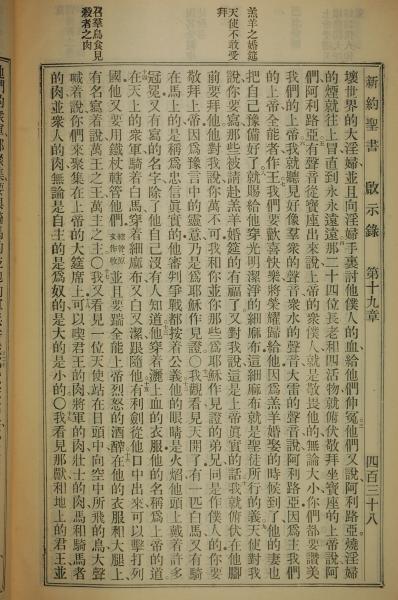 羔羊之婚筵
天使不敢受
拜
召羣鳥食見
殺者之肉
新約聖書 啟示錄 第十九章 四百三十八
壞世界的大淫婦並且向淫婦手裏討他僕人的血給他們伸冤他們又說阿利路亞燒淫婦
的煙就往上冒直到永永遠遠那二十四位長老和四活物就俯伏敬拜坐寶座的上帝說阿
們阿利路亞有聲音從寶座出來說上帝的衆僕人就是敬畏他的無論大小你們都要讚美
我們的上帝我就聽見好像羣衆的聲音衆水的聲音大雷的聲音說阿利路亞因爲主我們
的上帝全能者作王我們要歡喜快樂將榮耀歸給他因爲羔羊婚娶的時候到了他的妻也
把自己豫備好了就賜給他穿光明潔淨的細麻布這細麻布就是聖徒所行的義天使對我
說你要寫那些被請赴羔羊婚筵的有福了又對我說這是上帝眞實的話我就俯伏在他腳
前要拜他他對我說你萬不可我和你並你那些爲耶穌作見證的弟兄同是作僕人的你要
敬拜上帝因爲豫言中的靈意乃是爲耶穌作見證〇我觀看見天開了有一匹白馬又有騎
在馬上的是稱爲忠信眞實的他審判爭戰都按着公義他的眼睛是火熖他頭上戴着許多
冠冕又有寫的名字除了他自己沒有人知道他穿着灑上血的衣服他的名稱爲上帝的道
在天上的衆軍騎着白馬穿着細麻布又白又潔跟隨他有利劍從他口中出來可以擊打列
國他又要用鐵杖轄管他們轄管原文作牧並且要踹全能上帝烈怒的酒醡在他的衣服和大腿上
有名寫着說萬王之王萬主之主〇我又看見一位天使站在日頭中向空中所飛的鳥大聲
喊着說你們來聚集在上帝的大筵席上可以喫君王的肉將軍的肉壯士的肉馬和騎馬者
的肉並衆人的肉無論是自主的是爲奴的是大的是小的〇我看見那獸和地上的君王並